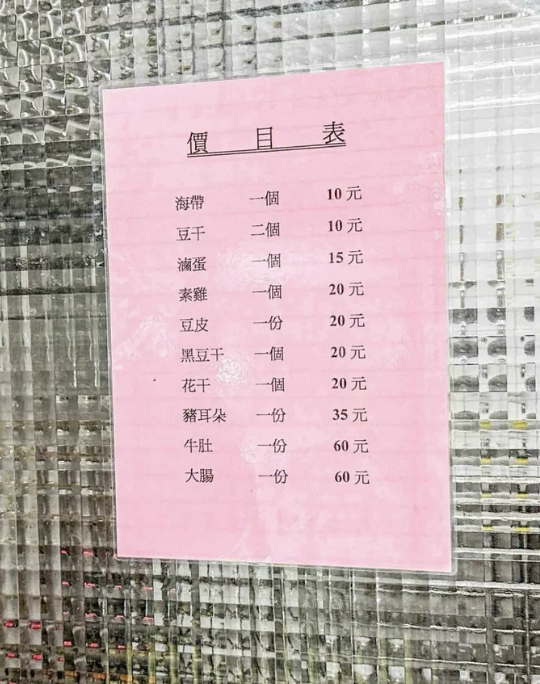 價 目 表
海帶 一個 10 元
豆干 二個 10 元
滷蛋 一個 15 元
素雞 一個 20 元
豆皮 一份 20 元
黑豆干 一個 20 元
花干 一個 20 元
豬耳朵 一份 35 元
牛肚 一份 60 元
大腸 一份 60 元